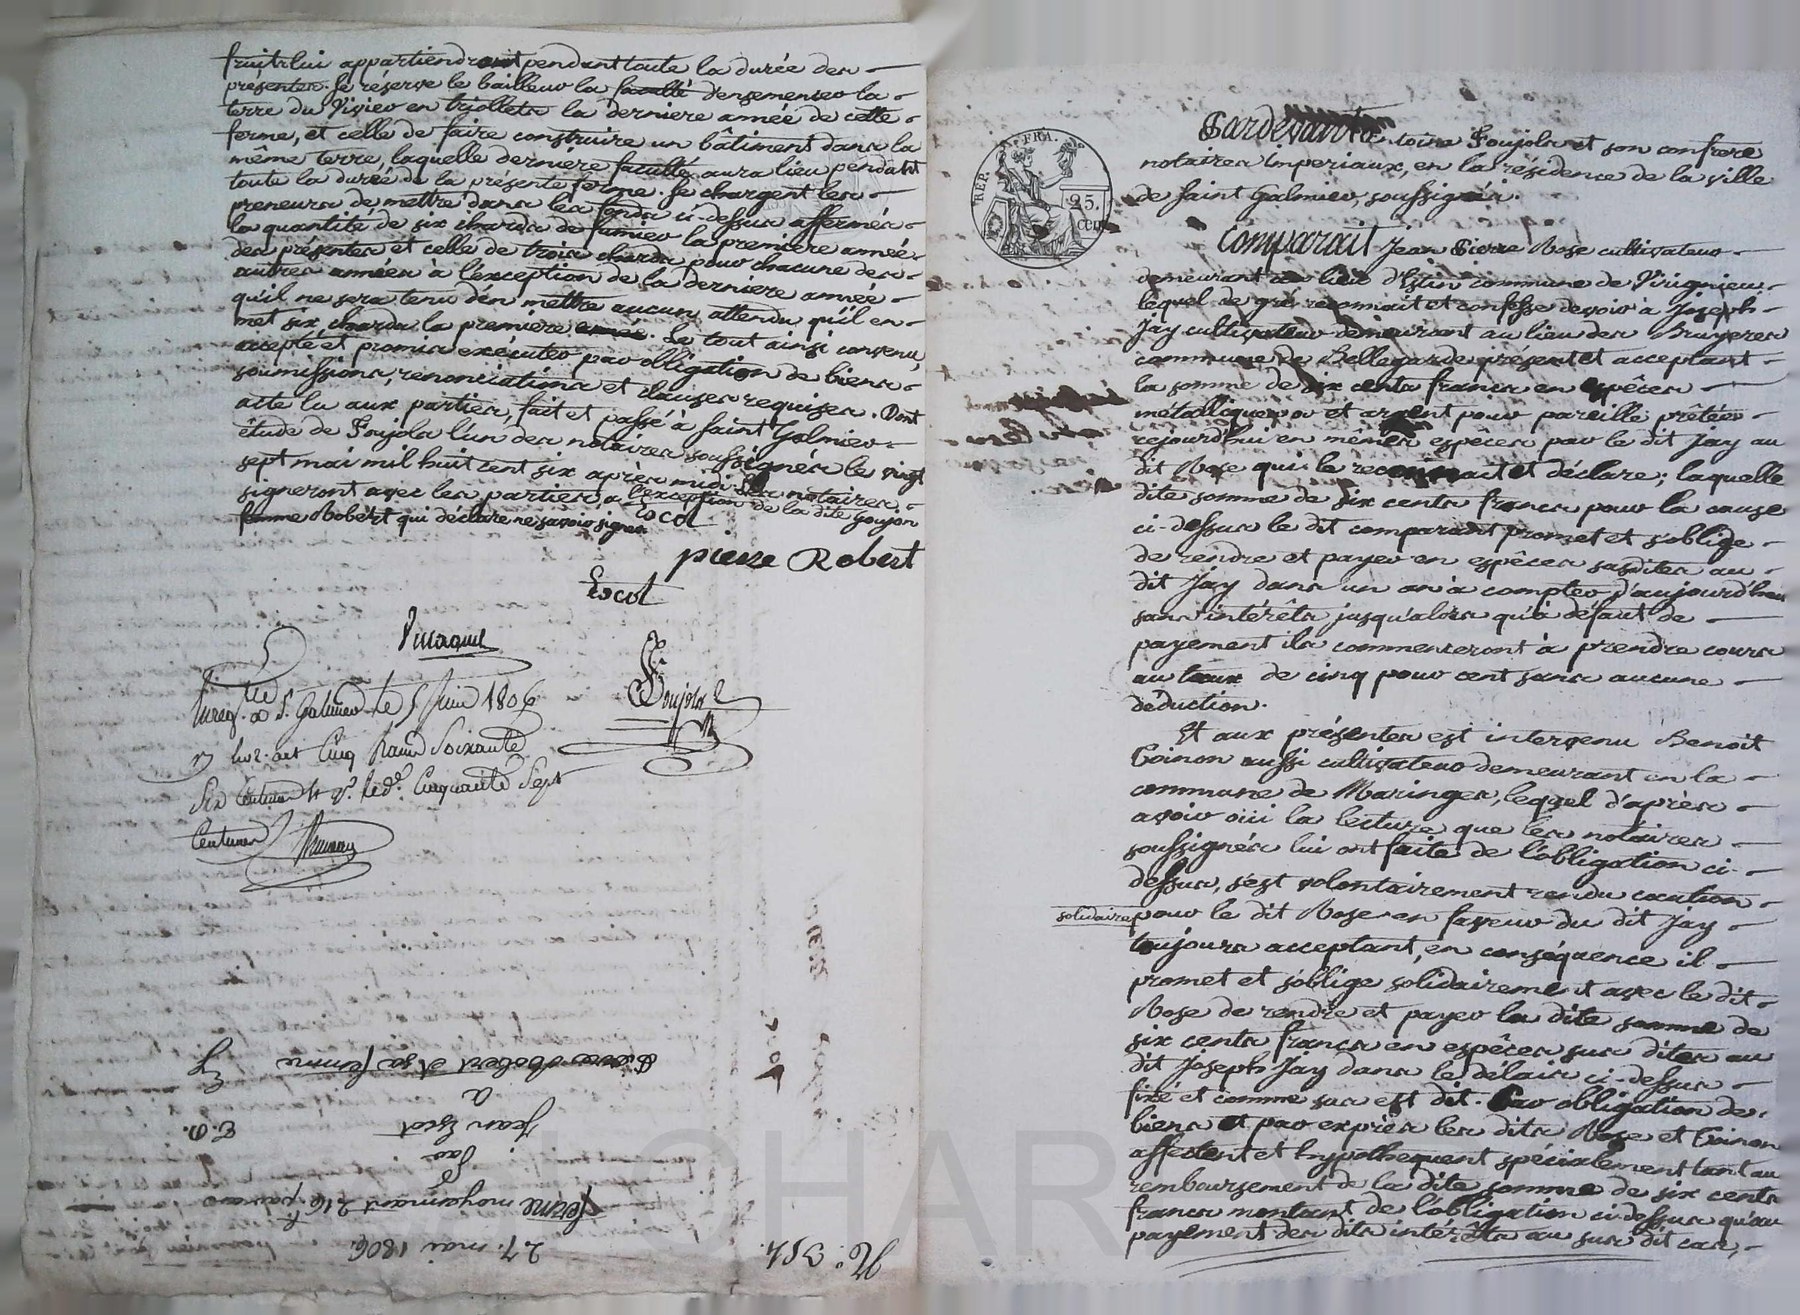 fruits lui appartiendront pendant toute la durée des
présentes. Se réserve le bailleur la faculté d'ensemencer la
terre du Vivier en triollets la derniere année de cette
ferme, et celle de faire construire un bâtiment dans la
même terre, laquelle derniere faculté aura lieu pendant
toute la durée de la présente ferme. Se chargent les
preneurs de mettre dans les fonds ci-dessus affermés
la quantité de six chards de fumier la premiere année
des présentes et celle de trois chards pour chacune des
autres années à l'exception de la derniere année
qu'il ne sera tenu d'en mettre aucun attendu qu'il en
met six chards la premiere année. Le tout ainsi convenu,
accepté et promis exécuter par obligation de biens
soumissions, renonciations et clauses requises. Dont
acte lu aux parties, fait et passé à saint Galmier
étude de Poujola l'un des notaires soussignés le vingt
sept mai mil huit cent six après midi Les notaires
signeront avec les parties, à l'exception de la dite Goujon
femme Robert qui déclare ne savoir signer
Escot
pierre Robert
Escot
Poujola
Enreg. à S. Galmier le 5 Juin 1806
Cinq francs Soixante
Six Centimes Cinquante Sept
Centimes
27. mai 1806.
N.° 314.
ferme moyennant 216 f. par an
Par
Jean Escot
à
Pierre Robert et sa femme
REP. FRA.
25.
cen
Pardevant Antoine Poujola et son confrere
notaires imperiaux, en la résidence de la ville
de saint Galmier, soussignés.
Comparait Jean Pierre Rose cultivateur
demeurant au lieu d'Estin commune de Virignieu
lequel de gré reconnait et confesse devoir à Joseph
Jay cultivateur demeurant au lieu des Bruyeres
commune de Bellegarde présent et acceptant
la somme de six cents francs en espêces
métallique or et argent pour pareille prêtée
cejourd'hui en mêmes espêces par le dit Jay au
dit Rose qui le reconnait et déclare; laquelle
dite somme de six cents francs pour la cause
ci-dessus le dit comparant promet et s'oblige
de rendre et payer en espêces susdites au
dit Jay dans un an à compter d'aujourd'hui
sans intérêts jusqu'alors qu'à défaut de
payement ils commenceront à prendre cours
au taux de cinq pour cent sans aucune
déduction.
Et aux présentes est intervenu Benoit
Poinon aussi cultivateur demeurant en la
commune de Maringes, lequel d'après
avoir oüi la lecture que les notaires
soussignés lui ont faite de l'obligation ci-
dessus, s'est volontairement rendu caution
solidaire pour le dit Rose en faveur du dit Jay
toujours acceptant, en conséquence il
promet et s'oblige solidairement avec le dit
Rose de rendre et payer la dite somme de
six cents francs en espêces sus dites au
dit Joseph Jay dans le délais ci-dessus
fixé et comme sus est dit. Par obligation de
biens et par exprès les dits Rose et Poinon
affectent et hypothequent specialement tant au
remboursement de la dite somme de six cents
francs montant de l'obligation ci-dessus qu'au
payement des dits intérêts au sus dit cas,